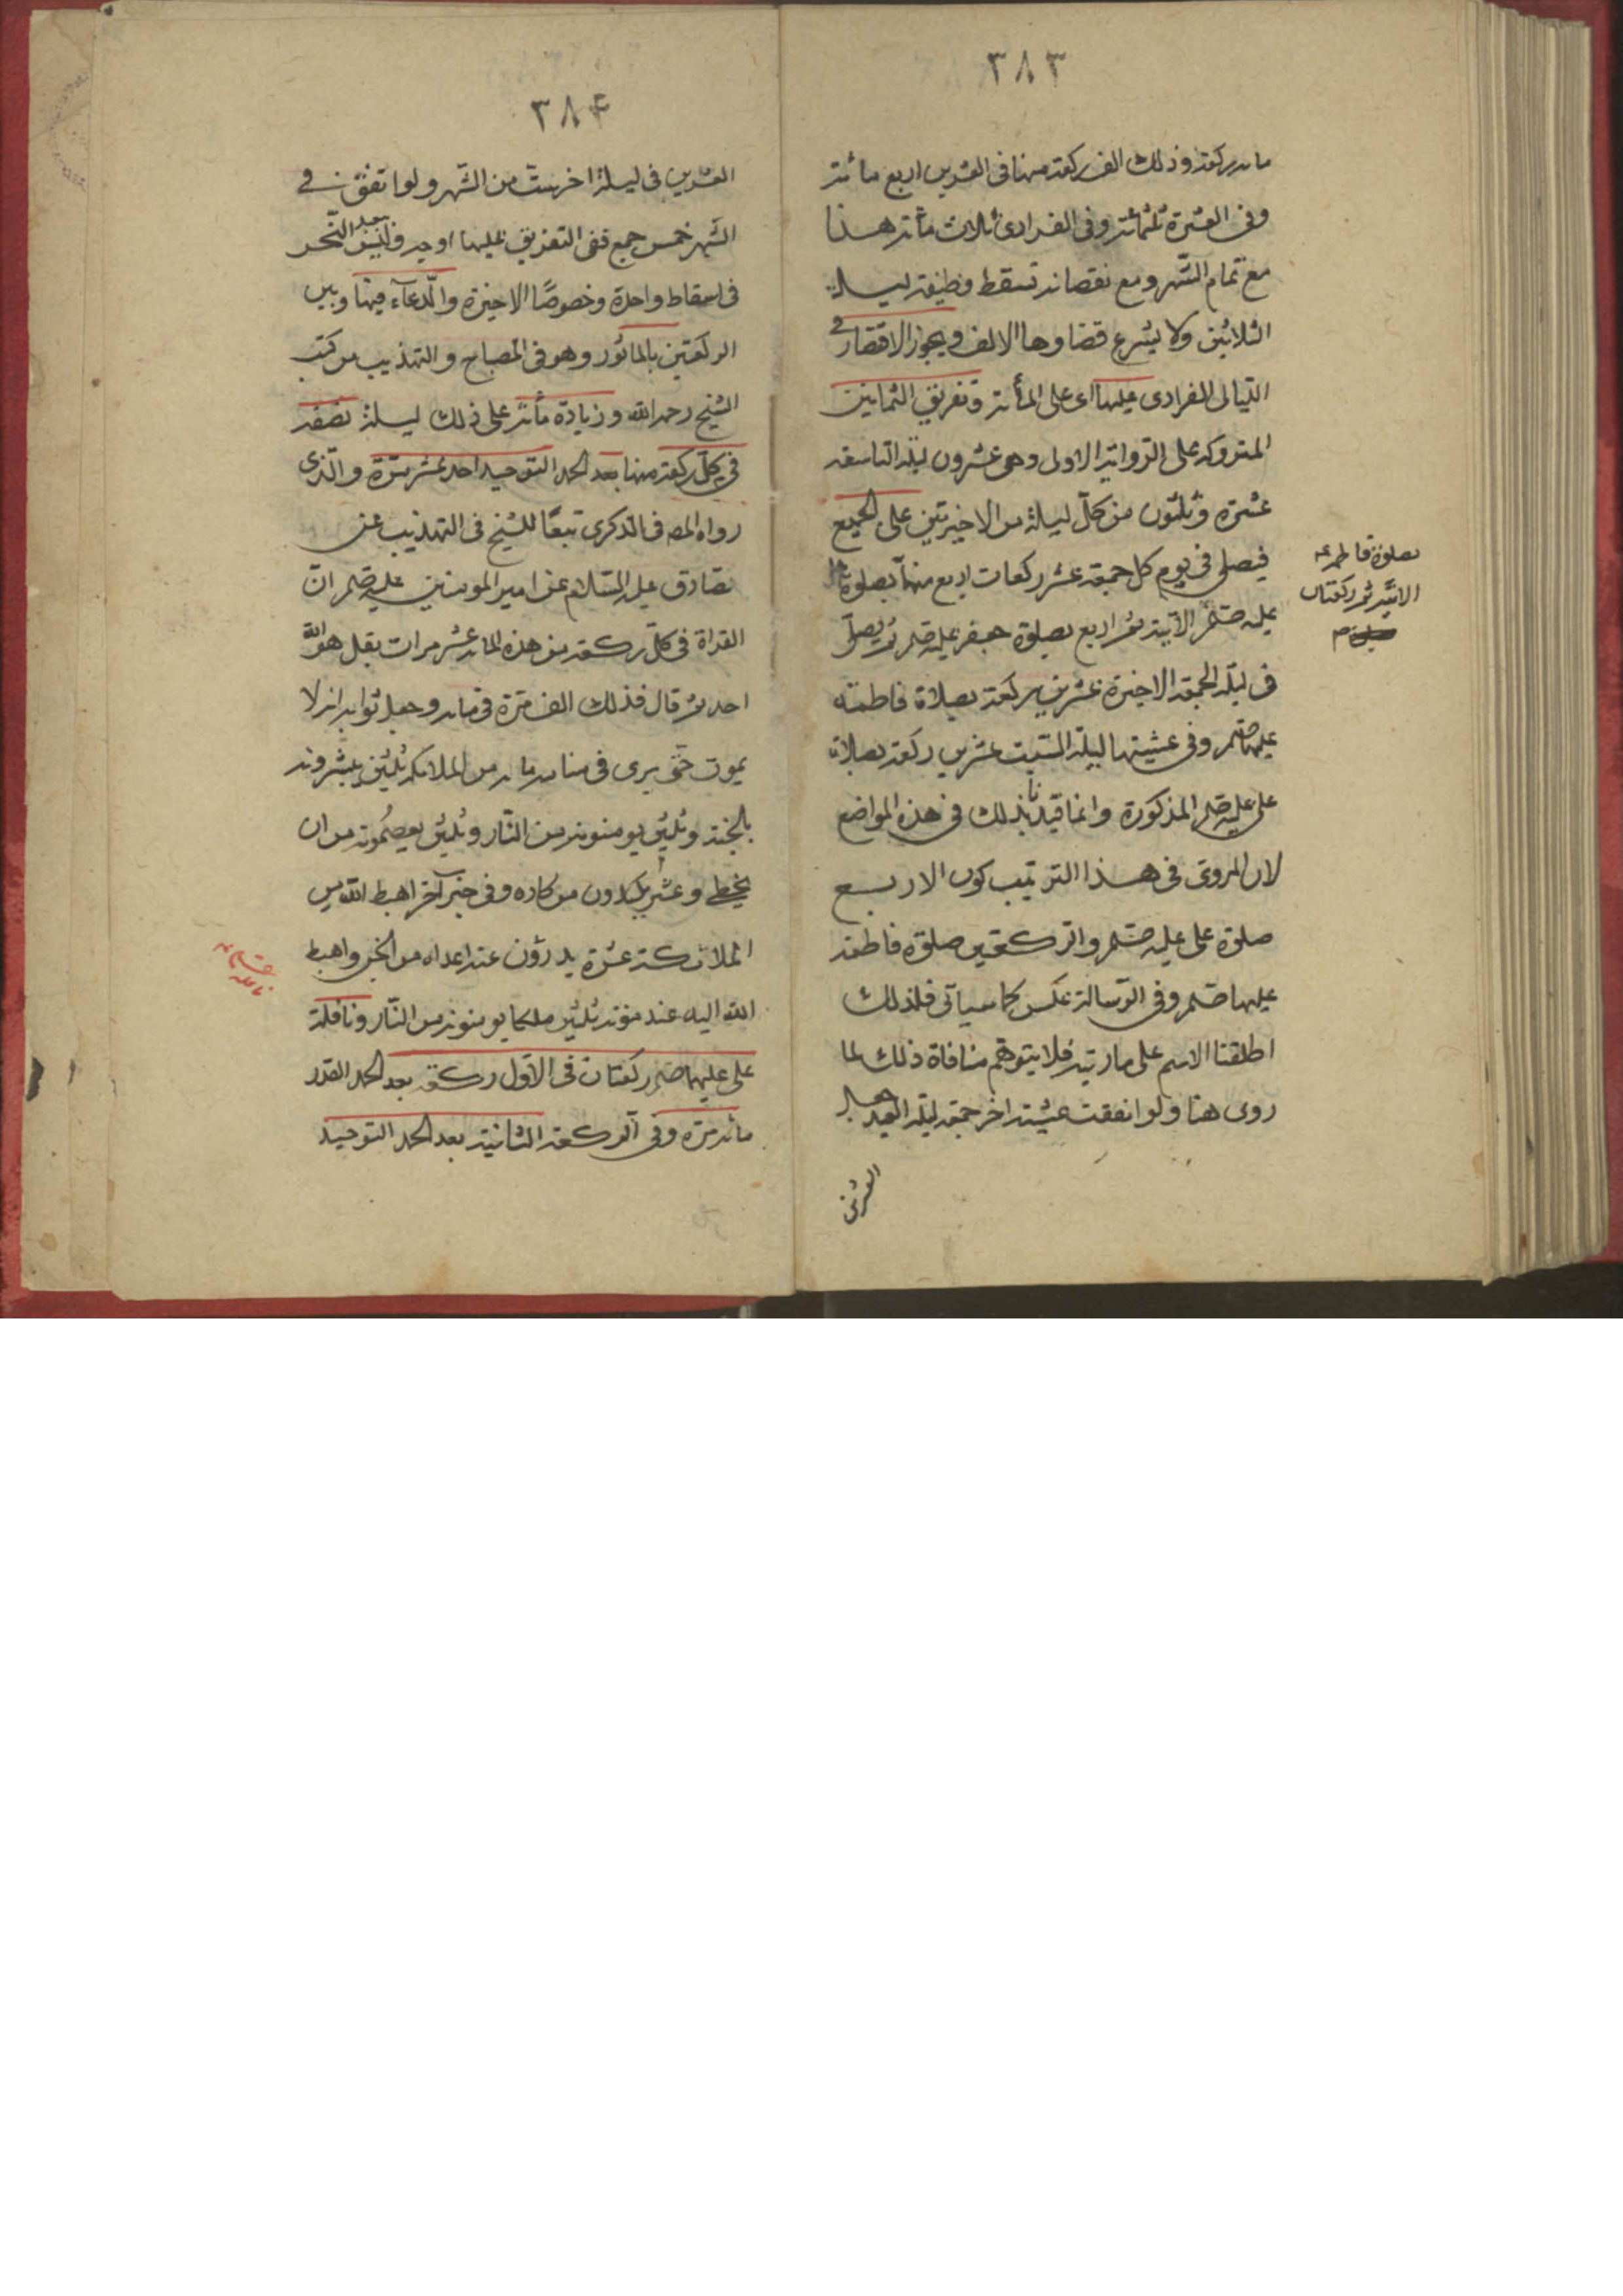 ٣٨٣
مائة ركعة وذلك الف ركعة منها فى العشرين اربع مائة
وفى العشرة ثلثمائة وفى الفرادى ثلاث مائة هذا
مع تمام الشهر ومع نقصانه تسقط وظيفة ليلة
الثلاثين ولا يشرع قضاوها الالف ويجوز الاقتصار فى
الليالى الفرادى عليها اى على المأة وتفريق الثمانين
المتروكة على الرواية الاولى وهى عشرون ليلة التاسعة
عشرة وثلثون من كل ليلة من الاخيرتين على الجمع
فيصلى فى يوم كل جمعة عشر ركعات اربع منها بصلوة على
عليه صلم الآتية ثم اربع بصلوة جعفر عليه صلم ثم يصلى
فى ليلة الجمعة الاخيرة عشرين ركعة بصلاة فاطمة
عليها صلم وفى عشيتها ليلة السبت عشرين ركعة بصلاة
على عليه صلم المذكورة وانما قيدنا بذلك فى هذه المواضع
لان المروى فى هذا الترتيب كون الاربع
صلوة على عليه صلم والركعتين صلوة فاطمة
عليها صلم وفى الرسالة عكس كما سيأتى فلذلك
اطلقنا الاسم على ما رتبه فلا يتوهم منافاة ذلك لما
روى هنا ولو اتفقت عشية اخر جمعة ليلة العيد جعل
العشرين
بصلوة فاطمة ع
الاتية ثم ركعتان
٣٨۴
العشرين فى ليلة اخر سبت من الشهر ولو اتفق فى
الشهر خمس جمع ففى التفريق عليها اوجه
فى اسقاط واحدة وخصوصًا الاخيرة والدعاء فيها وبين
الركعتين بالماثور وهو فى المصباح والتهذيب من كتب
الشيخ رحمه الله وزيادة مأة على ذلك ليلة نصفه
فى كل ركعة منها بعد الحمد التوحيد احد عشر مرة والذى
رواه المص فى الذكرى تبعًا للشيخ فى التهذيب عن
الصادق عليه السلام عن امير المومنين عليه صلم ان
القراة فى كل ركعة من هذه المائة عشر مرات بقل هو الله
احد ثم قال فذلك الف مرة فى مائة وجعل ثوابه انه لا
يموت حتى يرى فى منامه مائة من الملائكة ثلثين يبشرونه
بالجنة وثلثين يومنونه من النار وثلثين يعصمونه من ان
يخطى وعشر يكيدون من كاده وفى خبر آخر اهبط الله من
الملائكة عشرة يدرؤن عنه اعداه من الجن واهبط
الله اليه عند موته ثلثين ملكا يومنونه من النار ونافلة
على عليهما صلم ركعتان فى الاول ركعة بعد الحمد القدر
مائة مرة وفى الركعة الثانية بعد الحمد التوحيد